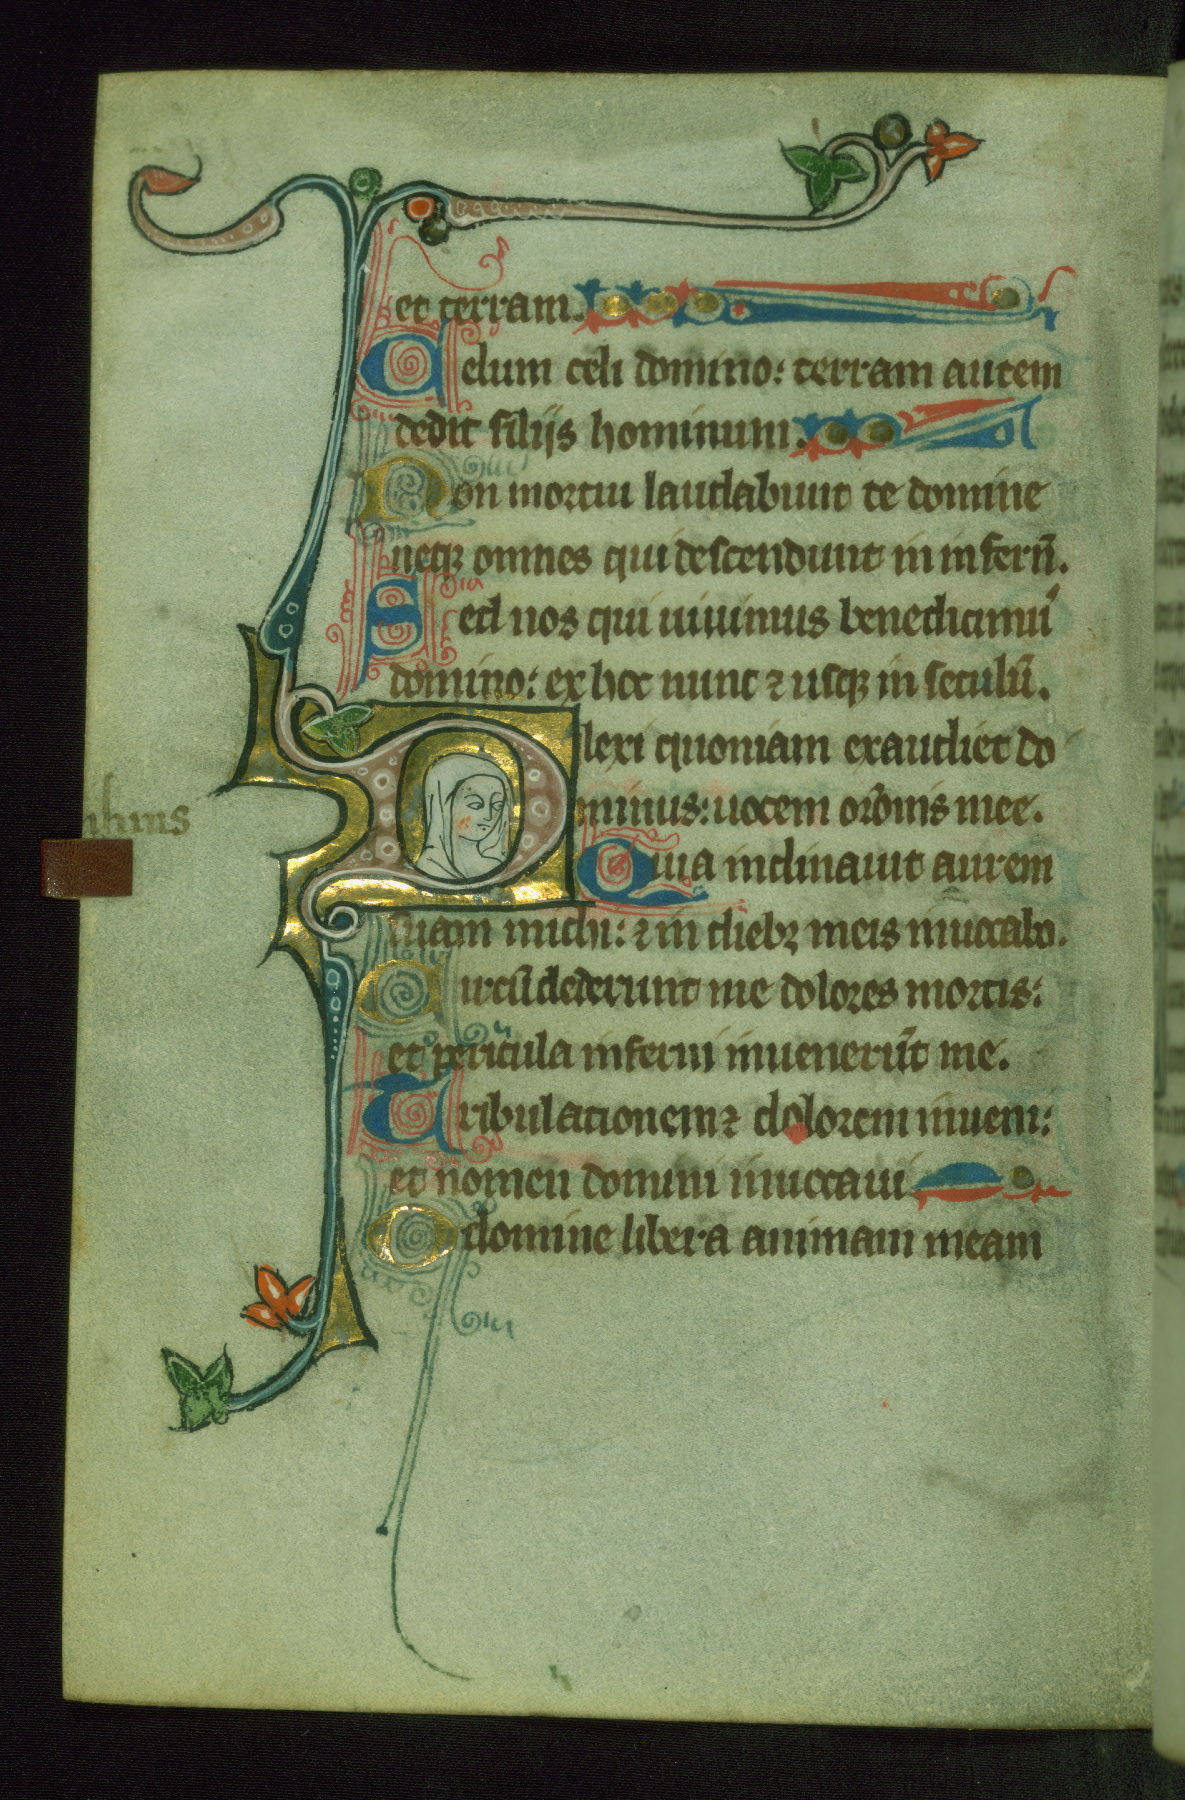 et terram.
Celum celi domino: terram autem
dedit filijs hominum.
Non mortui laudabunt te domine
neqꝫ omnes qui descendunt in infern̄.
Sed nos qui uiuimus benedicimuˀ
domino: ex hoc nunc ⁊ usqꝫ in seculū.
Dilexi quoniam exaudiet do
minus: uocem or̄onis mee.
Quia inclinauit aurem
suam michi: ⁊ in diebꝫ meis inuocabo.
Circūdederunt me dolores mortis:
et pericula inferni inuenerūt me.
Tribulationem ⁊ dolorem inueni:
et nomen domini inuocaui
O domine libera animam meam